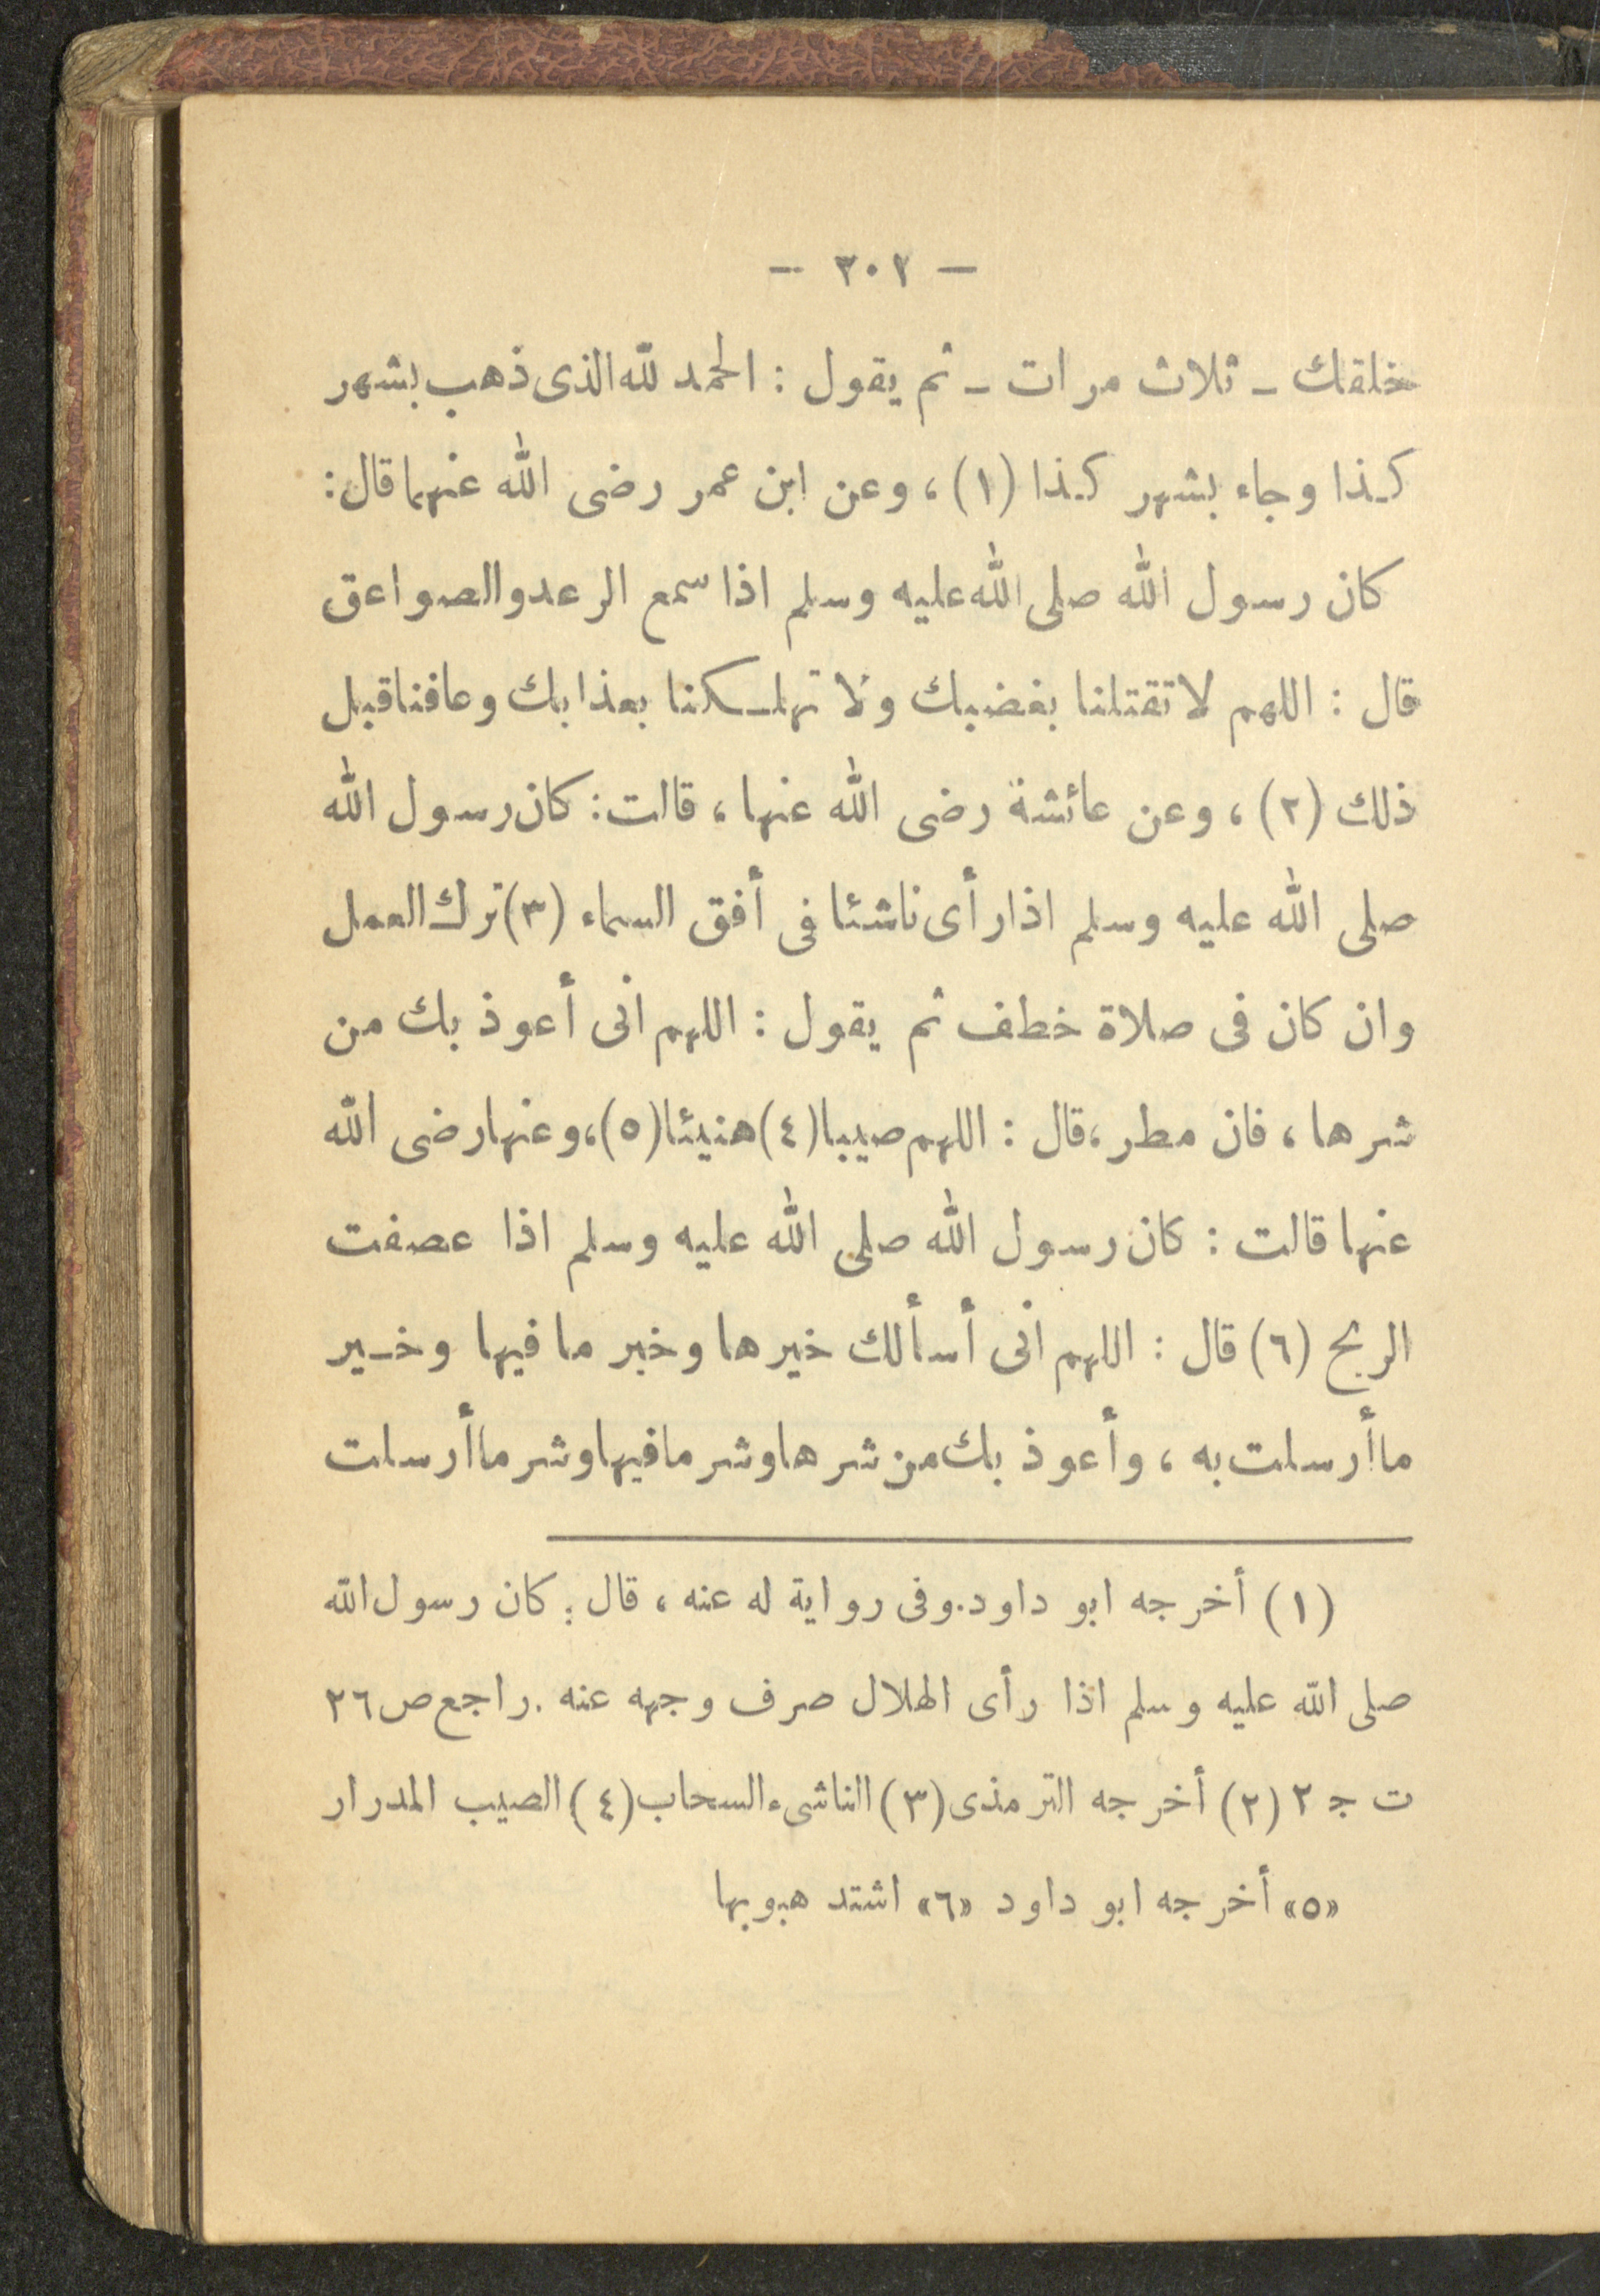 — ٣٠٢ —
خلقك ـ ثلاث مرات ـ ثم يقول : الحمد لله الذى ذهب بشهر
كذا وجاء بشهر كذا (١) ، وعن ابن عمر رضى الله عنهما قال :
كان رسول الله صلى الله عليه وسلم اذا سمع الرعد والصواعق
قال : اللهم لا تقتلنا بغضبك ولا تهلكنا بعذابك وعافنا قبل
ذلك (٢) ، وعن عائشة رضى الله عنها ، قالت : كان رسول الله
صلى الله عليه وسلم اذا رأى ناشئا فى أفق السماء (٣) ترك العمل
وان كان فى صلاة خطف ثم يقول : اللهم انى أعوذ بك من
شرها ، فان مطر ، قال : اللهم صيبا (٤) هنيئا (٥) ، وعنها رضى الله
عنها قالت : كان رسول الله صلى الله عليه وسلم اذا عصفت
الريح (٦) قال : اللهم انى أسألك خيرها وخير ما فيها وخير
ما أرسلت به ، وأعوذ بك من شرها وشر ما فيها وشر ما أرسلت
(١) أخرجه ابو داود . وفى رواية له عنه ، قال : كان رسول الله
صلى الله عليه وسلم اذا رأى الهلال صرف وجهه عنه . راجع ص ٢٦
ت ج ٢ (٢) أخرجه الترمذى (٣) الناشىء السحاب (٤) الصيب المدرار
«٥» أخرجه ابو داود «٦» اشتد هبوبها